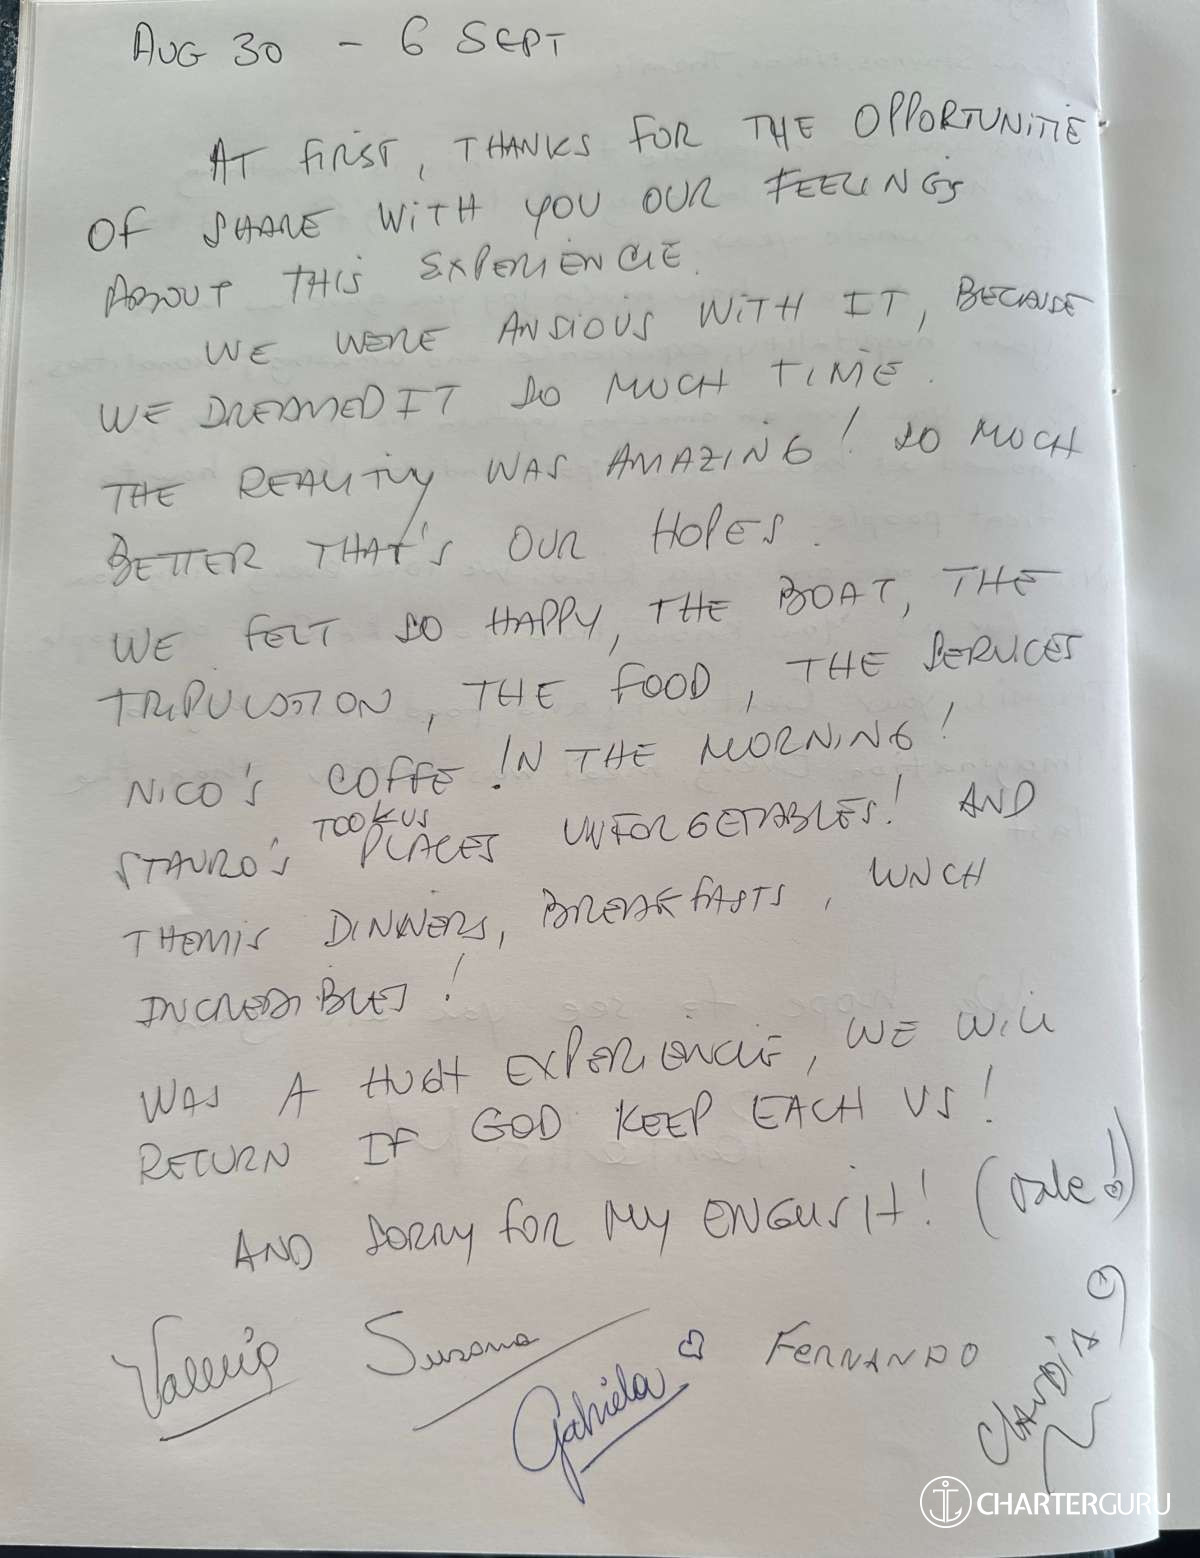 AUG 30 - 6 SEPT
AT FIRST, THANKS FOR THE OPPORTUNITIE
OF SHARE WITH YOU OUR FEELINGS
ABOUT THIS EXPERIENCIE.
WE WERE ANSIOUS WITH IT, BECAUSE
WE DREAMED IT SO MUCH TIME.
THE REALITIY WAS AMAZING! SO MUCH
BETTER THAT'S OUR HOPES.
WE FELT SO HAPPY, THE BOAT, THE
TRIPULATION, THE FOOD, THE SERVICES
NICO'S COFFE IN THE MORNING!
STAVRO'S, TOOK US PLACES UNFORGETABLES! AND
THEMIS DINNERS, BREAKFASTS, LUNCH
INCREDIBLES!
WAS A HUGH EXPERIENCIE, WE WILL
RETURN IF GOD KEEP EACH US!
AND SORRY FOR MY ENGLISH!
Valeria Susana Gabriela FERNANDO CLAUDIA
CHARTERGURU